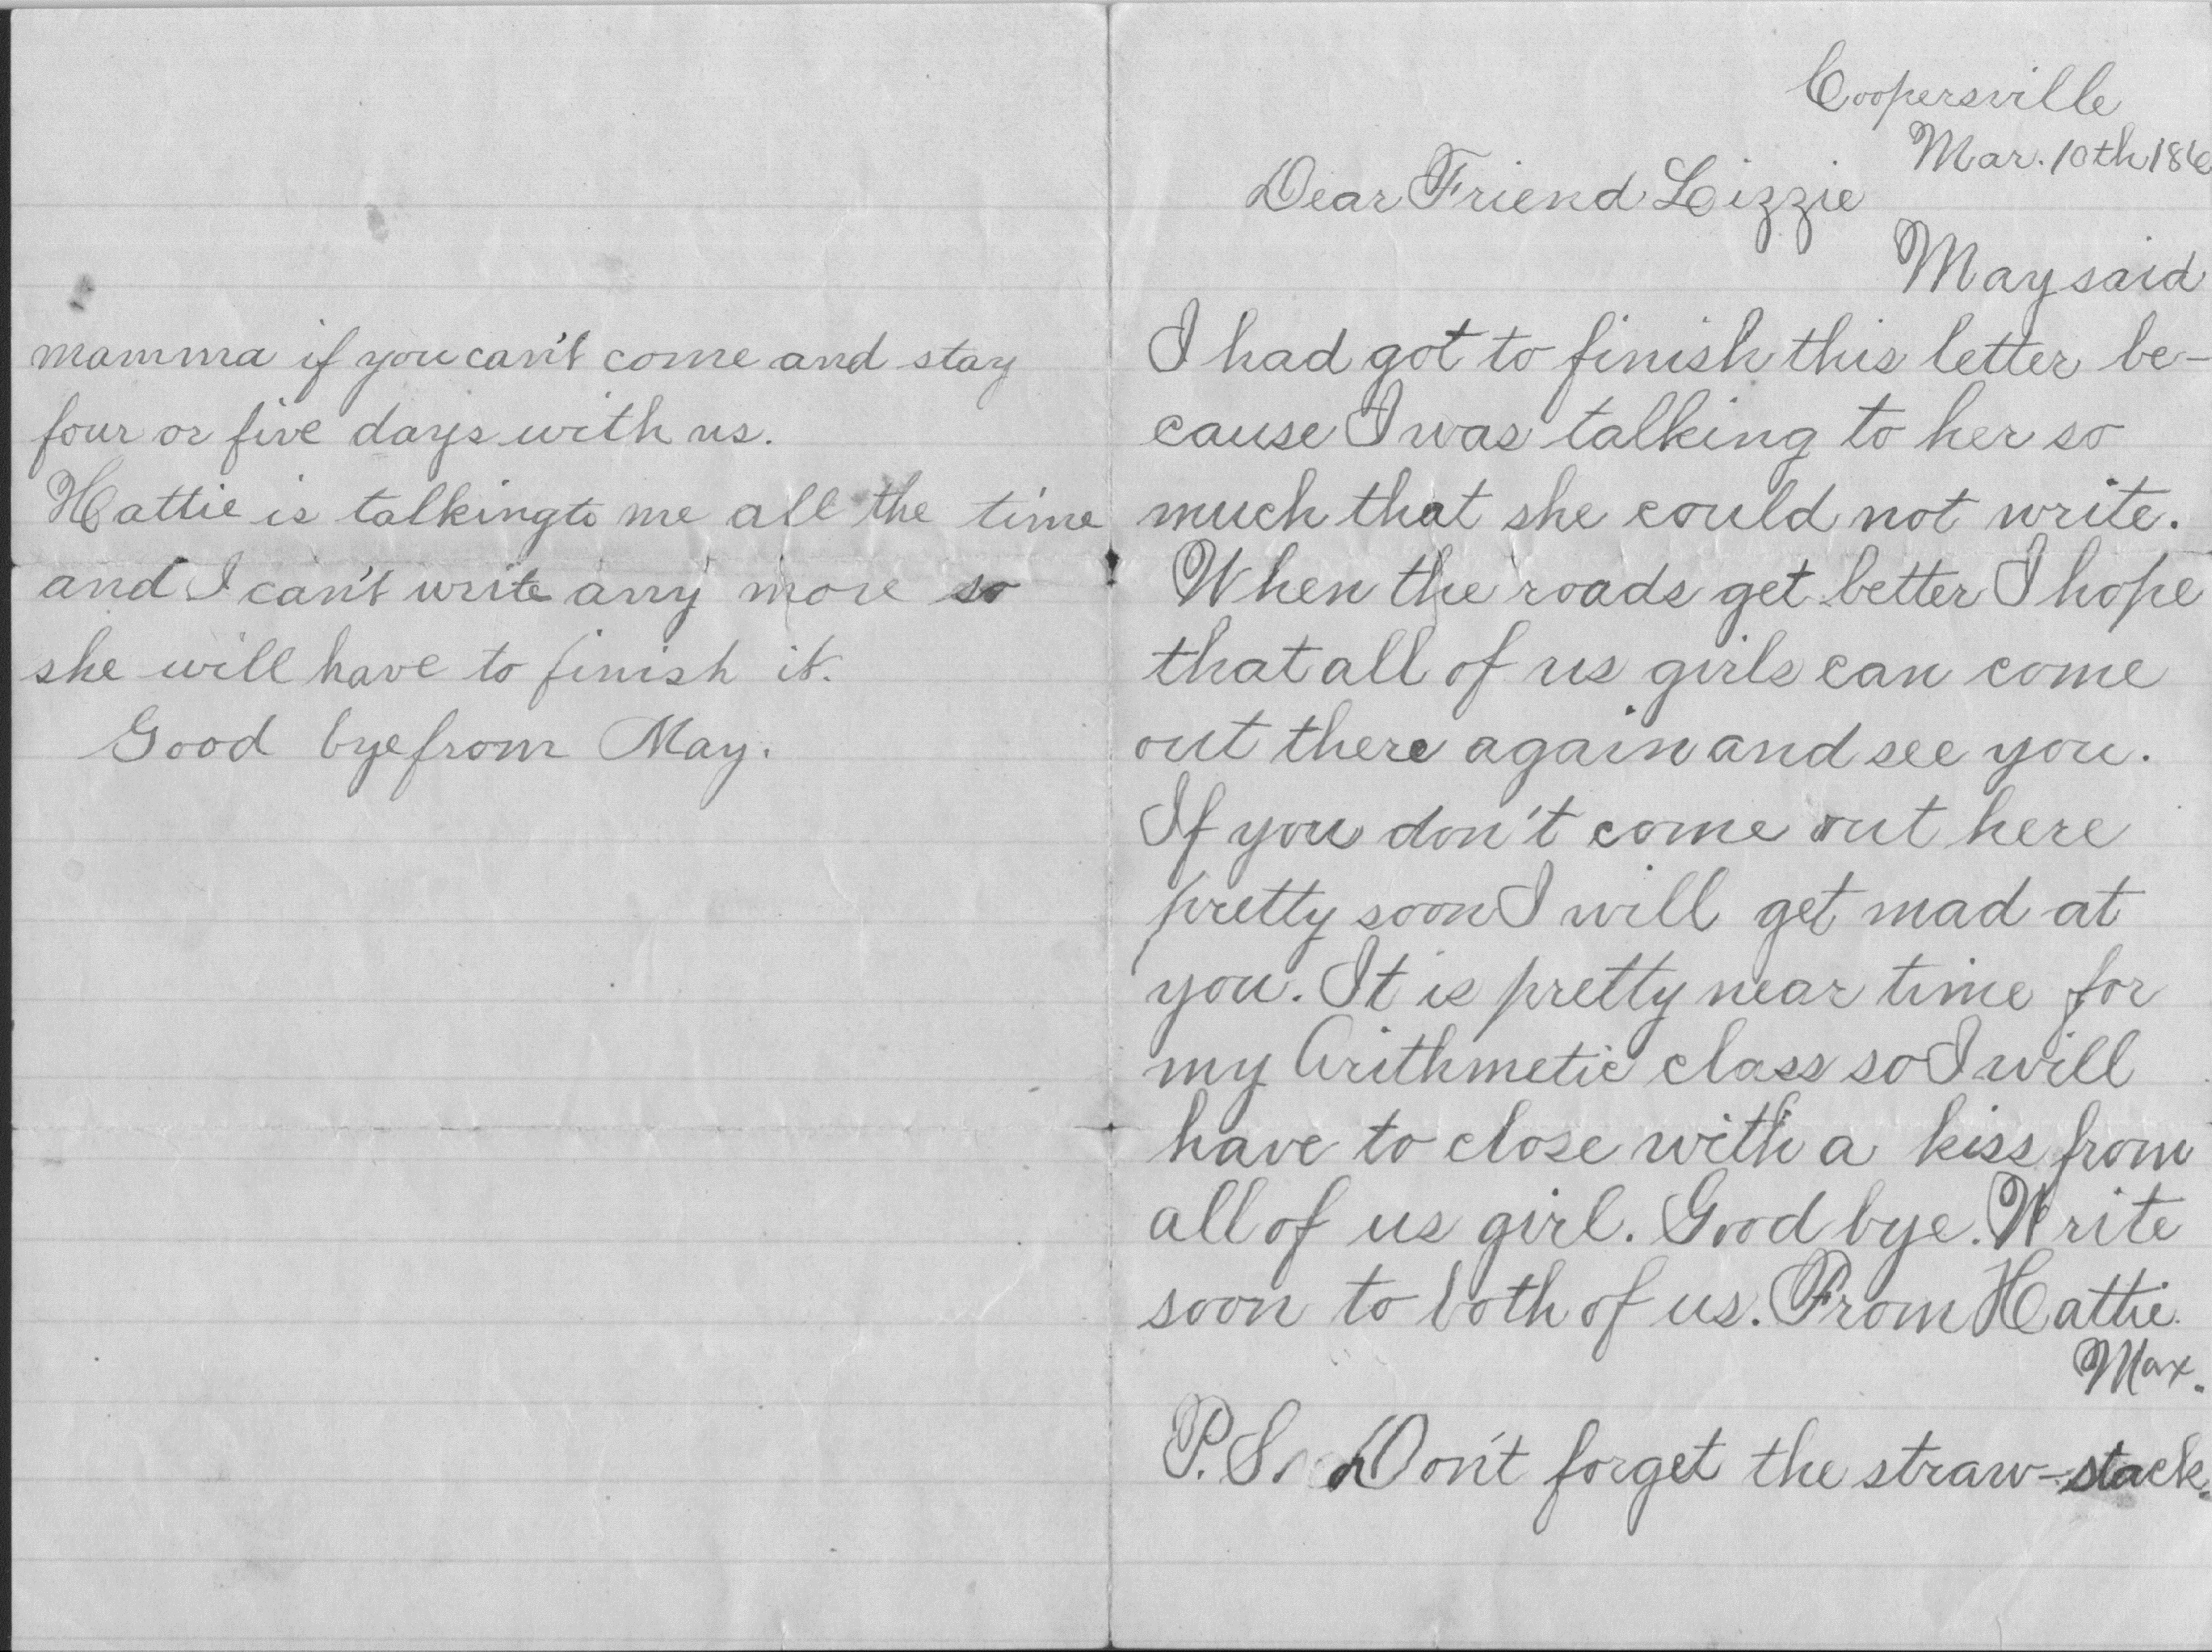 mamma if you can't come and stay
four or five days with us.
Hattie is talking to me all the time
and I can't write any more so
she will have to finish it.
Good bye from May.
Coopersville
Mar. 10th 18
Dear Friend Lizzie
May said
I had got to finish this letter be-
cause I was talking to her so
much that she could not write.
When the roads get better I hope
that all of us girls can come
out there again and see you.
If you don't come out here
pretty soon I will get mad at
you. It is pretty near time for
my Arithmetic class so I will
have to close with a kiss from
all of us girl. Good bye. Write
soon to both of us. From Hattie.
Max.
P.S. Don't forget the straw-stack.